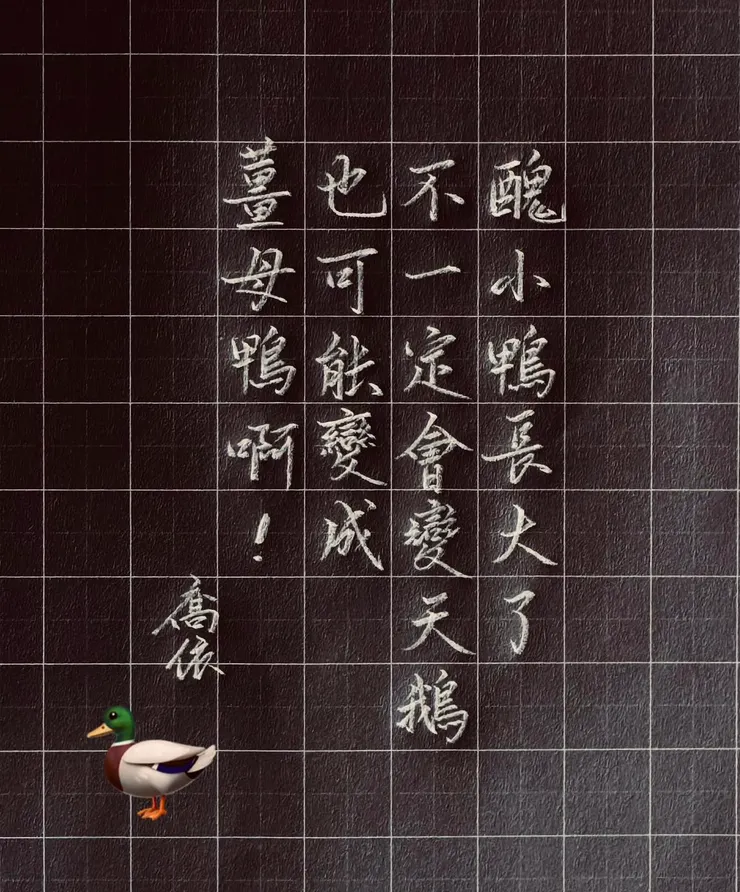 醜小鴨長大了
不一定會變天鵝
也可能變成
薑母鴨啊！
喬依